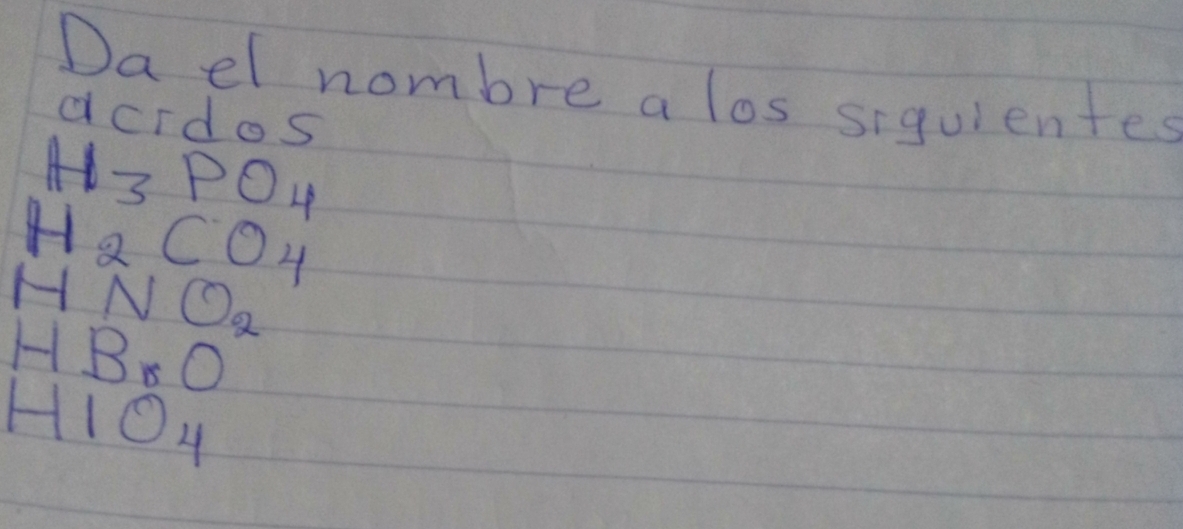 Da el nombre a los siguientes
acidos
H3PO4
H2CO4
HNO2
HBrO
HIO4